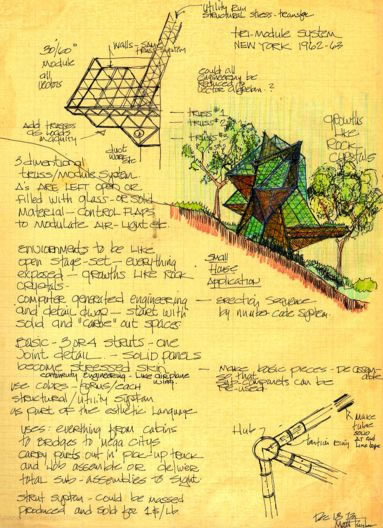 Utility Run
Structural stress-transfer
tri-module system
NEW YORK 1962-63
30/60°
Module
all
vectors
walls - same
truss
could all
engineering be
reduced to
vector algorithm?
Add trusses
as loads
require
truss #1
truss #2
truss #3
growths
like
Rock
crystals
duct
work
etc
3 dimentional
truss/module system
Δ's ARE LEFT OPEN OR
filled with glass - or solid
Material - control FLAPS
to modulate AIR-Light etc
ENVIRONMENTS to be like
open stage-set - everything
exposed - growths like Rock
crystals
Small
House
Application
computer generated engineering
and detail dwgs - start with
solid and "carve" out spaces
erection sequence
by number code system
BASIC - 3 OR 4 struts - one
Joint detail - solid panels
become stressed skin
continuity engineering - like airplane
wing
Make basic pieces - De
so that
sub-components can be
re-used
use colors - forms/each
structural/utility system
as part of the esthetic Language
uses: everything from cabins
to Bridges to mega citys
carry parts out in pick-up truck
and job assemble or deliver
total sub-assemblies to sight
Hub
Make
tube
solid
strut system - could be massed
produced and sold for 1 $/Lb